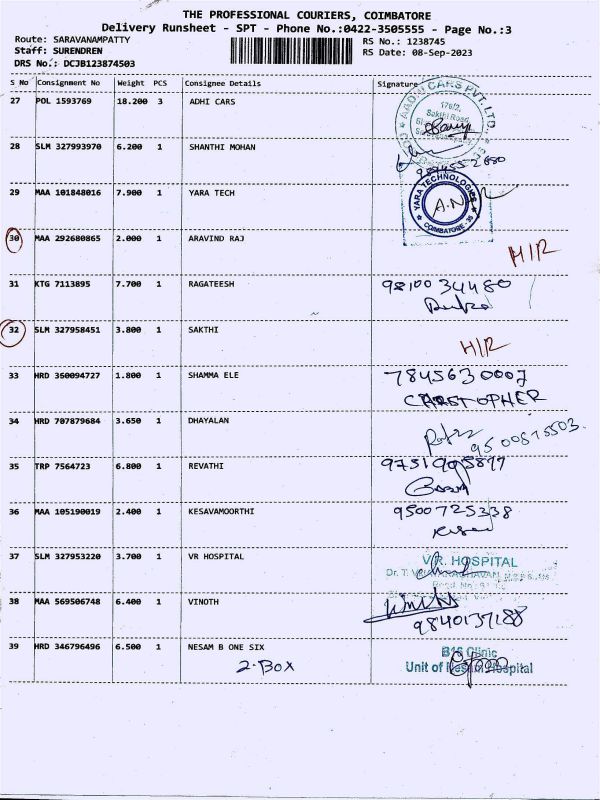 THE PROFESSIONAL COURIERS, COIMBATORE
Delivery Runsheet - SPT - Phone No.:0422-3505555 - Page No.:3
Route: SARAVANAMPATTY
Staff: SURENDREN
DRS No.: DCJB123874503
RS No.: 1238745
RS Date: 08-Sep-2023
S No Consignment No Weight PCS Consignee Details Signature
27 POL 1593769 18.200 3 ADHI CARS
CARS PVT. LTD.
176/2,
Sakthi Road,
28 SLM 327993970 6.200 1 SHANTHI MOHAN
29 MAA 101848016 7.900 1 YARA TECH
YARA TECHNOLOGIES
COIMBATORE - 35
A.N
30 MAA 292680865 2.000 1 ARAVIND RAJ
H/R
31 KTG 7113895 7.700 1 RAGATEESH
9810034480
32 SLM 327958451 3.800 1 SAKTHI
H/R
33 HRD 360094727 1.800 1 SHAMMA ELE
7845630007
CHRISTOPHER
34 HRD 707879684 3.650 1 DHAYALAN
35 TRP 7564723 6.800 1 REVATHI
36 MAA 105190019 2.400 1 KESAVAMOORTHI
9500725338
37 SLM 327953220 3.700 1 VR HOSPITAL
V.R. HOSPITAL
38 MAA 569506748 6.400 1 VINOTH
9840137188
39 HRD 346796496 6.500 1 NESAM B ONE SIX
2-BOX
B16 Clinic
Unit of Nesam Hospital